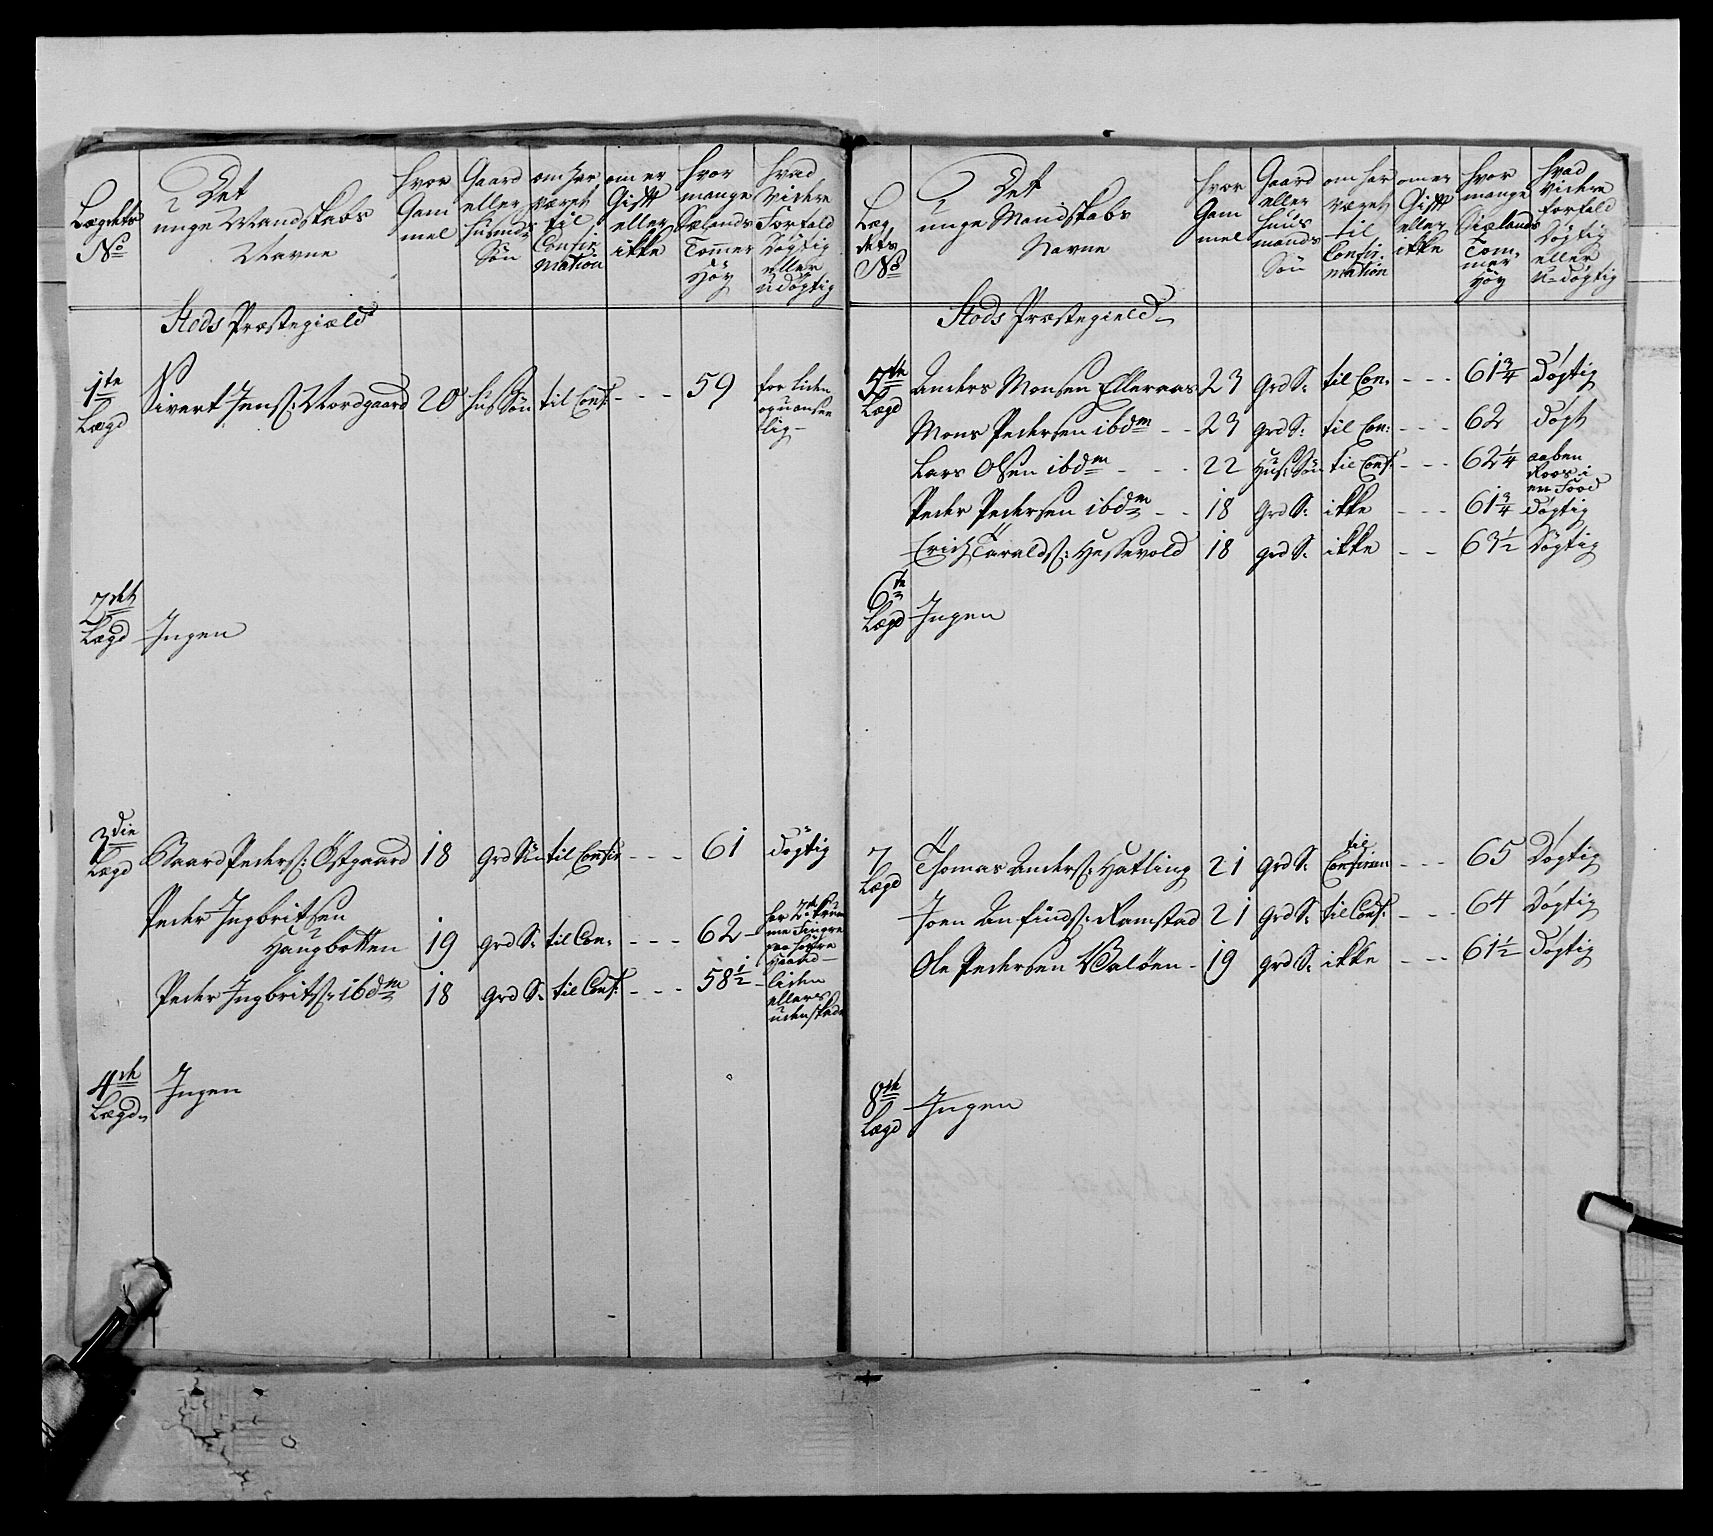 Lægdets
No
Det
unge Mandskabs
Navne
hvor
Gam
mel
Gaard
eller
Husmds
Søn
om har
været
til
Confir
mation
om er
Gifft
eller
ikke
hvor
mange
Sælands
Tomer
Høy
hvad
Videre
Forfald
Døgtig
eller
Udøgtig
Stods Præstegiæld
1te
Lægd
Sivert Jens: Nordgaard 20 Hus Søn til Conf: - - - 59 for liden
og uansee
lig -
2det
Lægd
Ingen
3die
Lægd
Baard Peders: Østgaard 18 Grd Sön til Confir - - - 61 Døgtig
Peder Ingbritsen
Haugbotten 19 Grd S: til Con: - - - 62 -
Peder Ingbrits: ibdm 18 Grd S: til Conf: - - - 58 1/2 - liden
ellers
uden skade
4de
Lægd
Ingen
Læg
dets
No
Dett
unge Mandskabs
Navne
hvor
Gam
mel
Gaard
eller
Huus
mands
Søn
om har
været
til
Confir-
mation
om er
Gifft
eller
ikke
hvor
mange
Siælands
Tom-
mer
Høy
hvad
videre
forfald
Døgtig
eller
U-døgtig
Stods Præstegield
5te
Lægd
Anders Monsen Elleraas 23 Grd S: til Con: - - - 61 3/4 Døgtig
Mons Pedersen ibdm - - 23 Grd S: til Con: - - - 62 Døgt
Lars Olsen ibdm - - - 22 Hus Søn til Conf: - - - 62 1/4 aaben
Roos i
en Food
Peder Pedersen ibdm - - 18 Grd S: ikke - - - 61 3/4 Døgtig
Erich Taralds: Hessevold 18 Grd S: ikke - - 63 1/2 Døgtig
6te
Lægd
Ingen
7
Lægd
Thomas Anders: Hatling 21 Grd S: til
Confirm - - - 65 Døgtig
Joen Anfinds: Ramstad 21 Grd S: til Conf: - - - 64 Døgtig
Ole Pedersen Baløen - 19 Grd S: ikke - - - 61 1/2 Døgtig
8de
Lægd
Ingen